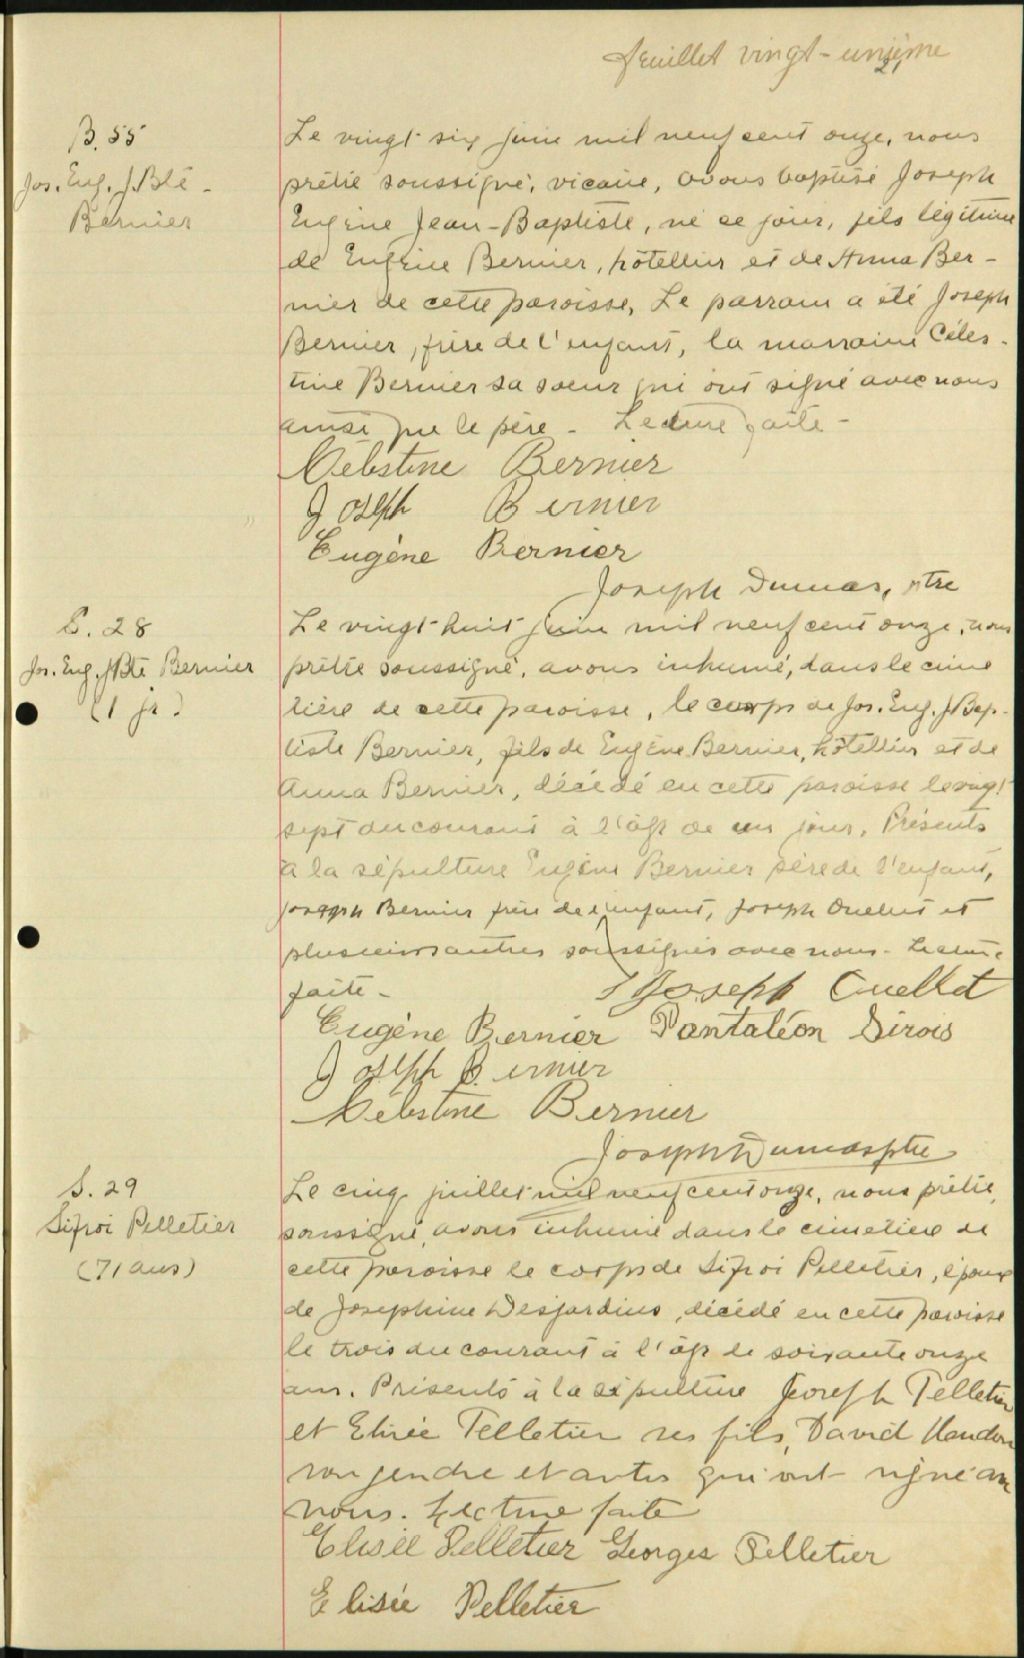 feuillet vingt-unième
21
B. 55
Jos. Eug. J. Bte -
Bernier
Le vingt six juin mil neuf cent onze, nous
prêtre soussigné, vicaire, avons baptisé Joseph
Eugène Jean-Baptiste, né ce jour, fils légitime
de Eugène Bernier, hôtellier et de Anna Ber-
nier de cette paroisse. Le parrain a été Joseph
Bernier, frère de l'enfant, la marraine Céles-
tine Bernier sa soeur qui ont signé avec nous
ainsi que le père - Lecture faite -
Célestine Bernier
Joseph Bernier
Eugène Bernier
Joseph Dumas, ptre
S. 28
Jos. Eug. J Bte Bernier
(1 jr.)
Le vingt-huit juin mil neuf cent onze, nous
prêtre soussigné, avons inhumé, dans le cime
tière de cette paroisse, le corps de Jos. Eug. J Bap-
tiste Bernier, fils de Eugène Bernier, hôtellier et de
Anna Bernier, décédé en cette paroisse le vingt
sept du courant à l'âge de un jour. Présents
à la sépulture Eugène Bernier père de l'enfant,
Joseph Bernier frère de l'enfant, Joseph Ouellet et
plusieurs autres soussignés avec nous - Lecture
faite -
Joseph Ouellet
Eugène Bernier Pantaléon Sirois
Joseph Bernier
Célestine Bernier
Joseph Dumas ptre
S. 29
Sifroi Pelletier
(71 ans)
Le cinq juillet mil neuf cent onze, nous prêtre,
soussigné, avons inhumé dans le cimetière de
cette paroisse le corps de Sifroi Pelletier, époux
de Josephine Desjardins, décédé en cette paroisse
le trois du courant à l'âge de soixante onze
ans. Présents à la sépulture Joseph Pelletier
et Elisée Pelletier ses fils, David
son gendre et autres qui ont signé avec
nous. Lecture faite
Elisée Pelletier Georges Pelletier
Elisée Pelletier